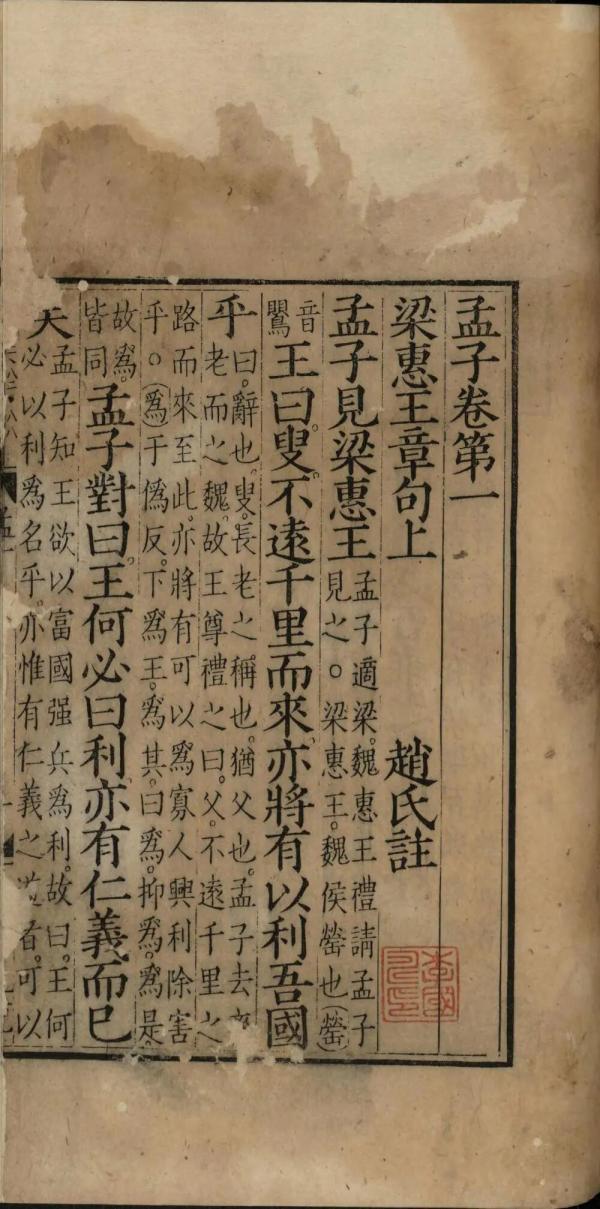 孟子卷第一
梁惠王章句上 趙氏註
孟子見梁惠王
孟子適梁。魏惠王禮請孟子
見之。○梁惠王。魏侯罃也(罃)
音
鸎
王曰。叟。不遠千里而來、亦將有以利吾國
乎
曰。辭也。叟。長老之稱也。猶父也。孟子去
老而之魏。故王尊禮之曰。父。不遠千里之
路而來至此。亦將有可以爲寡人興利除害
乎。○(爲)于僞反。下爲王。爲其。曰爲。抑爲。爲是
故爲。
皆同
孟子對曰。王何必曰利、亦有仁義而已
孟子知王欲以富國强兵爲利。故曰。王何
必以利爲名乎。亦惟有仁義之 者。可以